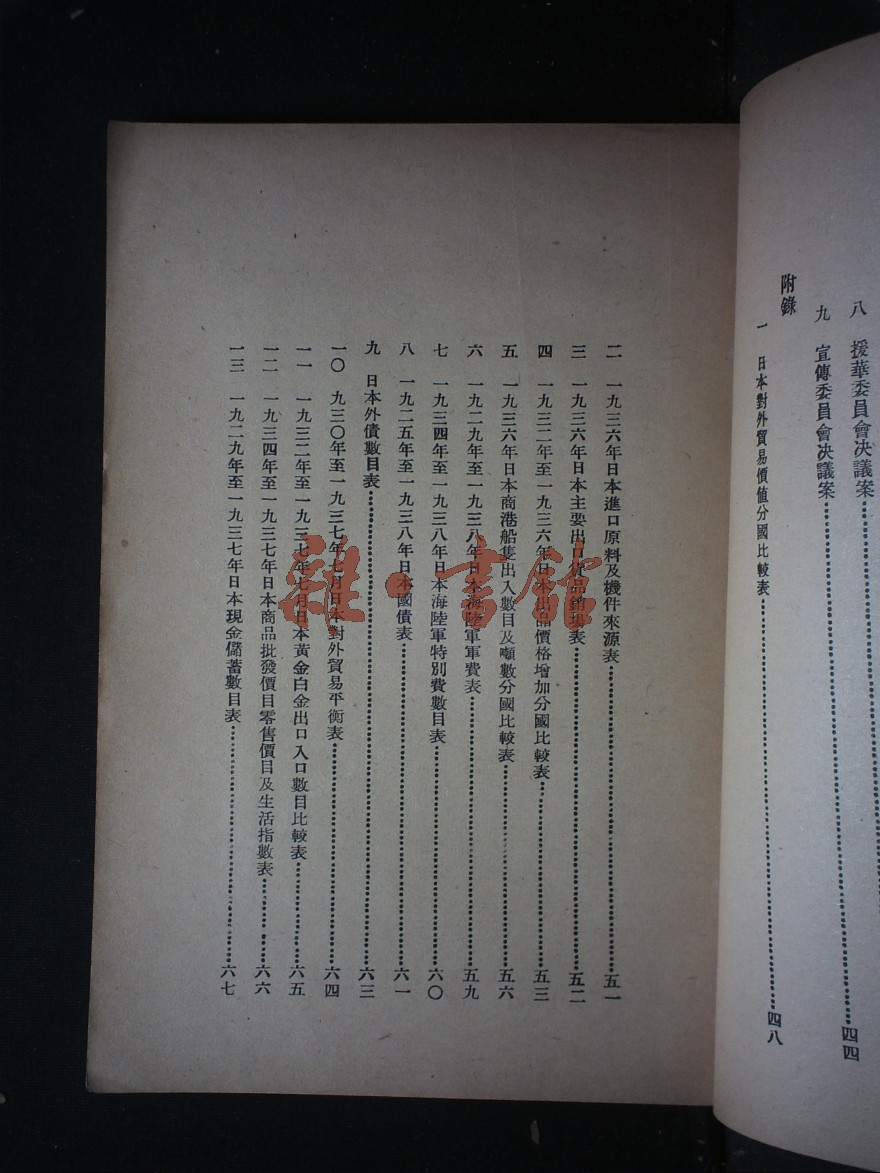 八　援華委員會決議案
九　宣傳委員會決議案……四四
附錄
一　日本對外貿易價值分國比較表……四八
二　一九三六年日本進口原料及機件來源表……五一
三　一九三六年日本主要出口貨品銷場表……五二
四　一九三二年至一九三六年日本出品價格增加分國比較表……五三
五　一九三六年日本商港船隻出入數目及噸數分國比較表……五六
六　一九二九年至一九三八年日本海陸軍軍費表……五九
七　一九三四年至一九三八年日本海陸軍特別費數目表……六〇
八　一九二五年至一九三八年日本國債表……六一
九　日本外債數目表……六三
一〇　九三〇年至一九三七年七月日本對外貿易平衡表……六四
一一　一九三二年至一九三七年七月日本黃金白金出口入口數目比較表……六五
一二　一九三四年至一九三七年日本商品批發價目零售價目及生活指數表……六六
一三　一九二九年至一九三七年日本現金儲蓄數目表……六七
雜·書館